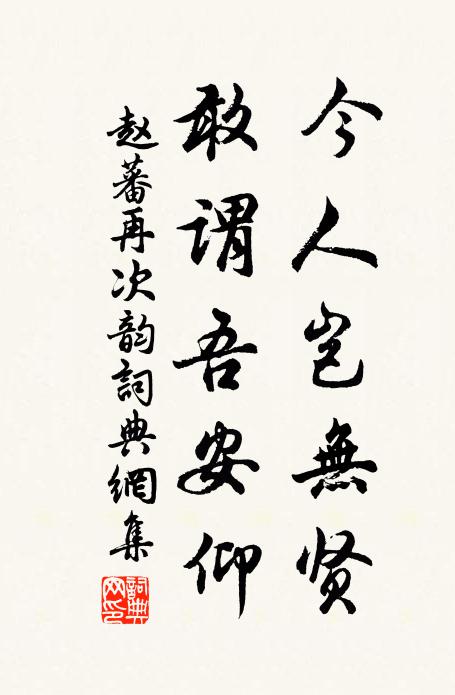 今人岂無贤
敢谓吾安仰
赵蕃再次韵詞典網集
詞典網印